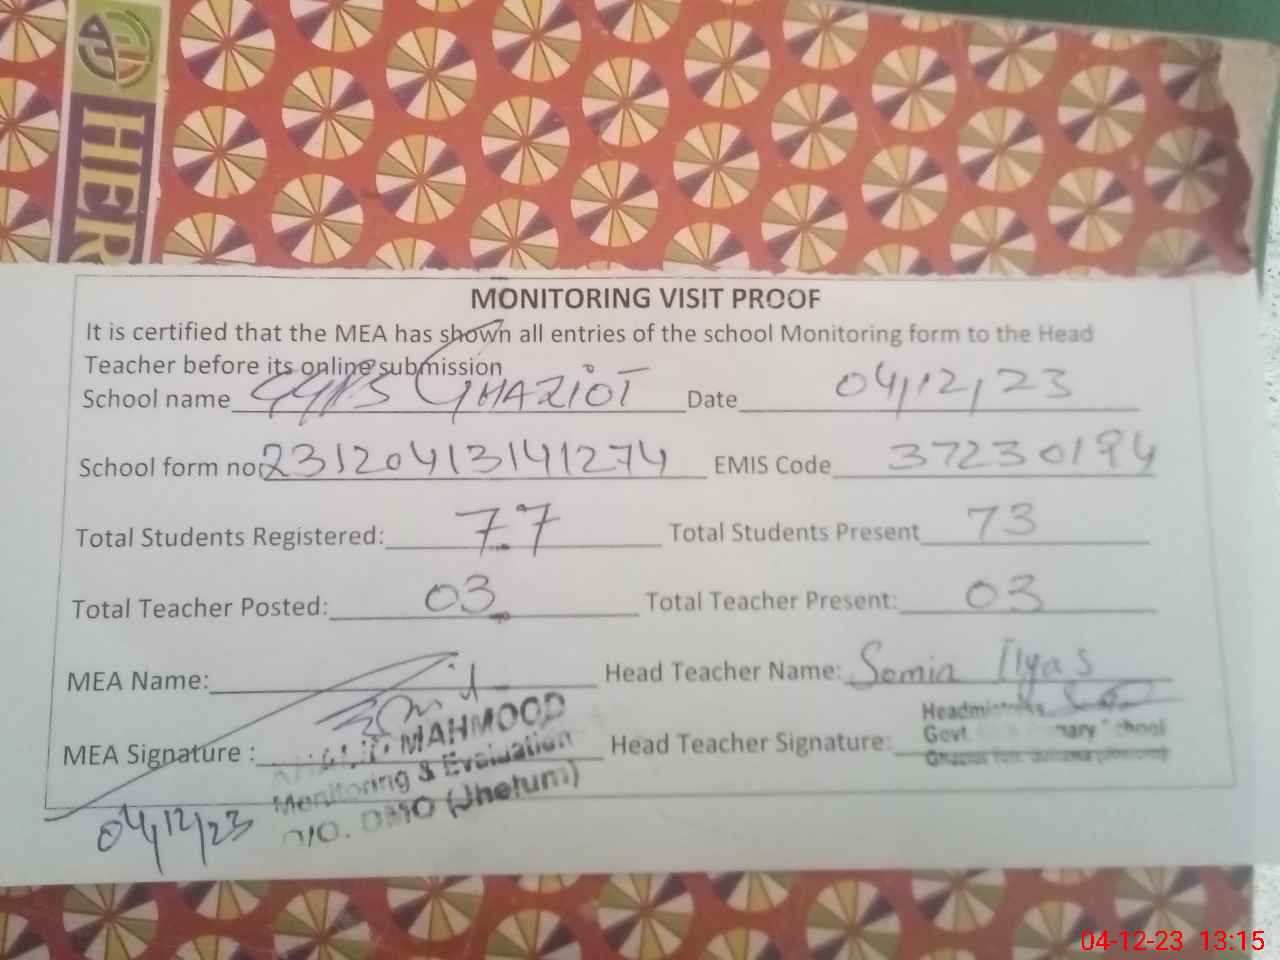 HER
MONITORING VISIT PROOF
It is certified that the MEA has shown all entries of the school Monitoring form to the Head
Teacher before its online submission
School name GGPS GHAZIOT Date 04/12/23
School form no 23120413141274 EMIS Code 37230194
Total Students Registered: 77 Total Students Present 73
Total Teacher Posted: 03 Total Teacher Present: 03
MEA Name: Head Teacher Name: Somia Ilyas
MEA Signature : MAHMOOD Head Teacher Signature: Headmistress
Govt. School
Monitoring & Evaluation
O/O. DMO (Jhelum)
04/12/23
04-12-23 13:15